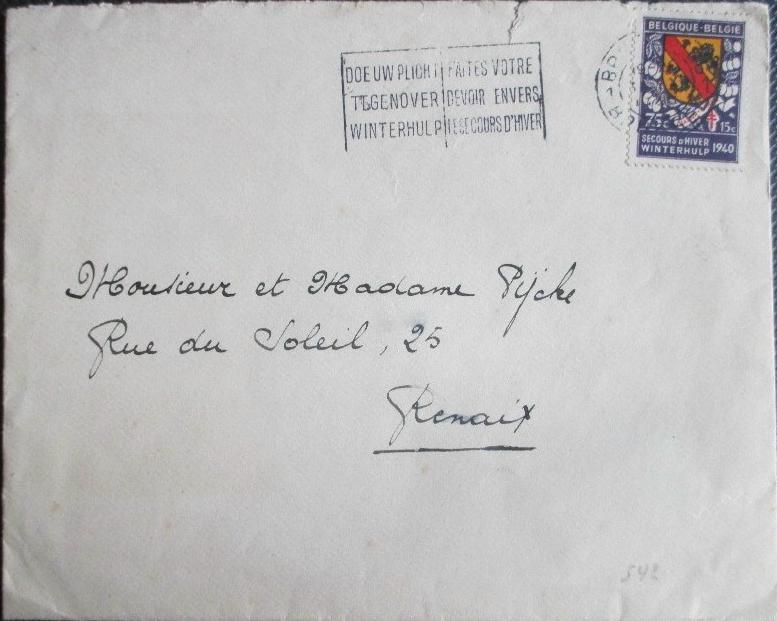 BELGIQUE-BELGIË
75c 15c
SECOURS D'HIVER
WINTERHULP 1940
DOE UW PLICHT
TEGENOVER
WINTERHULP
FAITES VOTRE
DEVOIR ENVERS
LE SECOURS D'HIVER
Monsieur et Madame Pijcke
Rue du Soleil, 25
Renaix
542